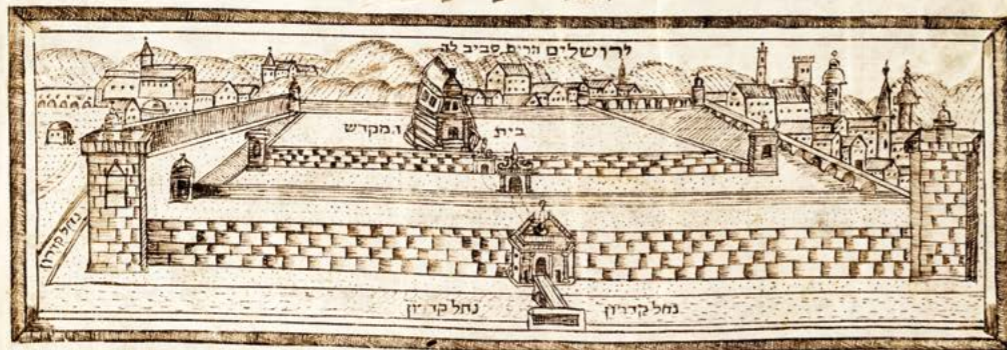 ירושלים הרים סביב לה
בית המקדש
נחל קדרון
נחל קדרון
נחל קדרון